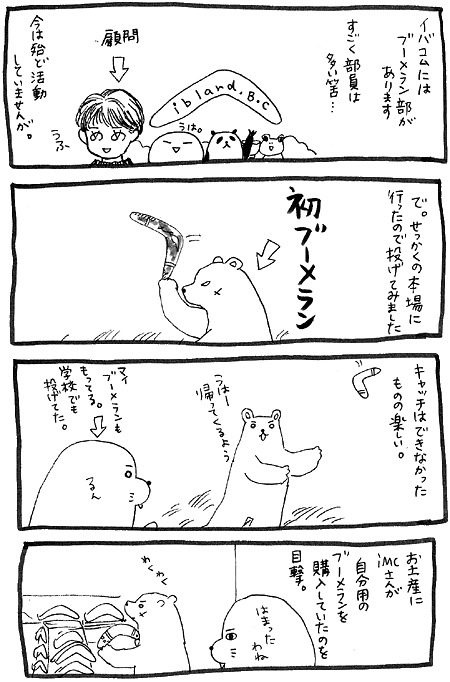 イバコムには
ブーメラン部が
あります
すごく部員は
多い筈…
ibland.B.C
顧問
うは。
うふ
今は殆ど活動
していませんが。
で。せっかくの本場に
行ったので投げてみました
初ブーメラン
キャッチはできなかった
ものの楽しい。
うはー
帰ってくるよう
マイ
ブーメランも
もってる。
学校でも
投げてた。
るん
お土産に
iMCさんが
自分用の
ブーメランを
購入していたのを
目撃。
わくわく
はまった
わね